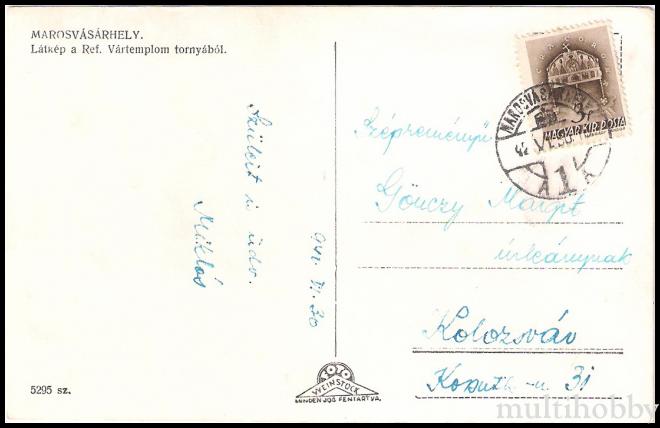 MAROSVÁSÁRHELY.
Látkép a Ref. Vártemplom tornyából.
Szüleit is üdv.
Miklós
941. VI. 20
5295 sz.
WEINSTOCK
MINDEN JOG FENTARTVA.
MAGYAR KIR. POSTA
MAROSVÁSÁRHELY
1
Gönczy Margit
úrleánynak
Kolozsvár
31
multihobby